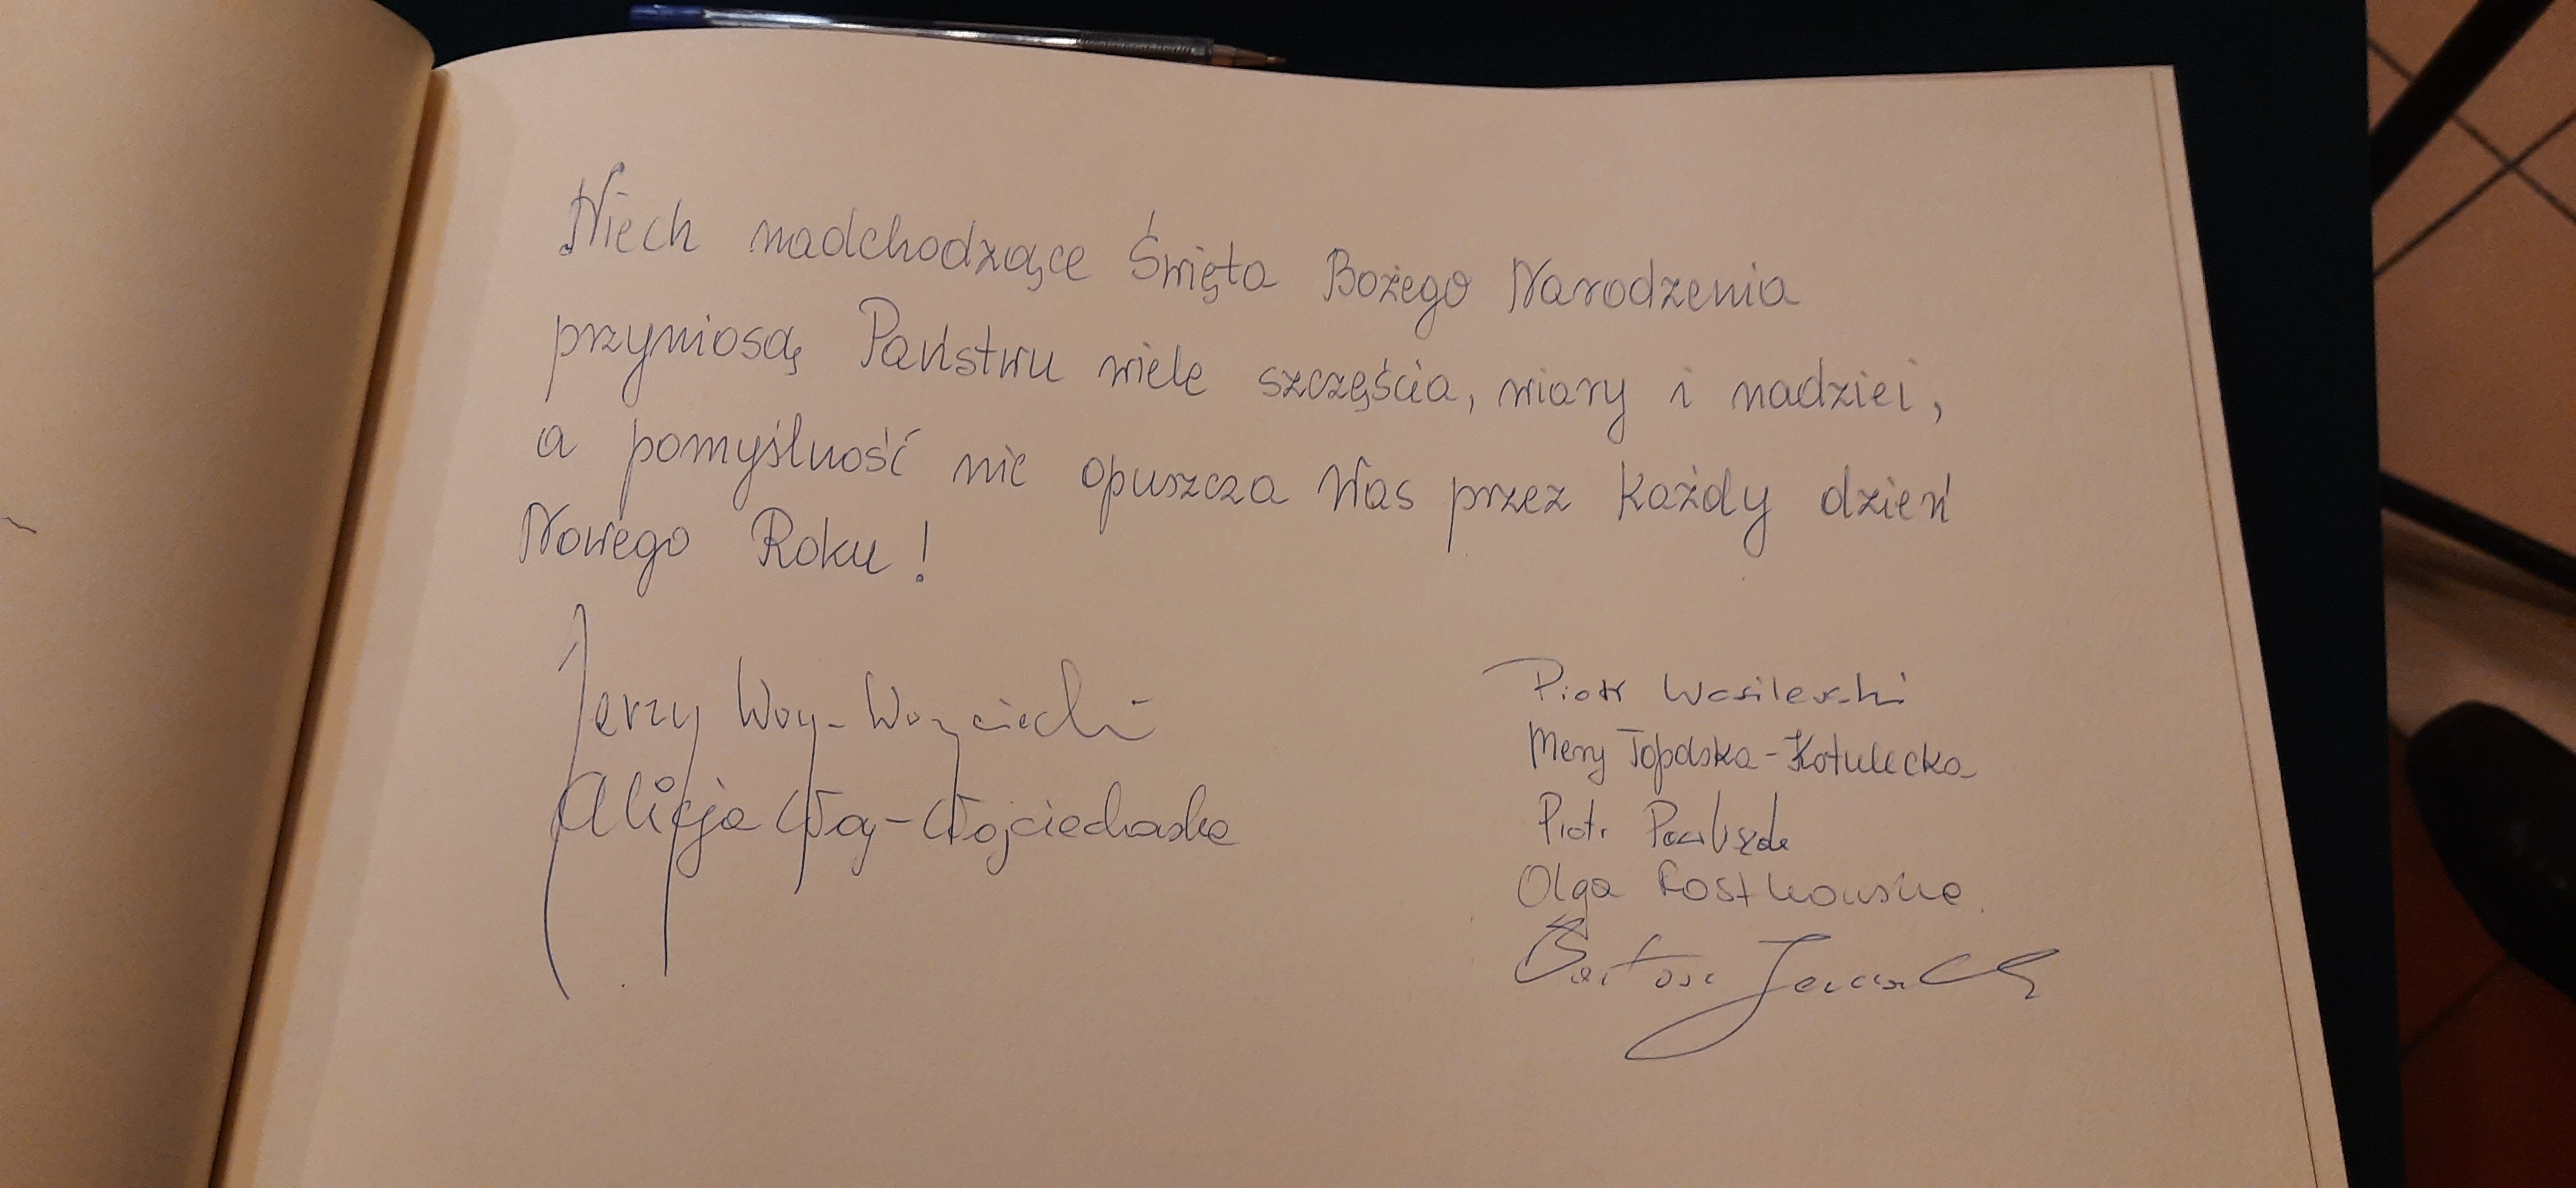 Niech nadchodzące Święta Bożego Narodzenia
przyniosą Państwu wiele szczęścia, wiary i nadziei,
a pomyślność nie opuszcza Was przez każdy dzień
Nowego Roku!
Jerzy Woy-Wojciechowski
Alicja Woy-Wojciechowska
Piotr Wasilewski
Mery Topolska-Kotulecka
Piotr
Olga Rostkowska
Bartosz